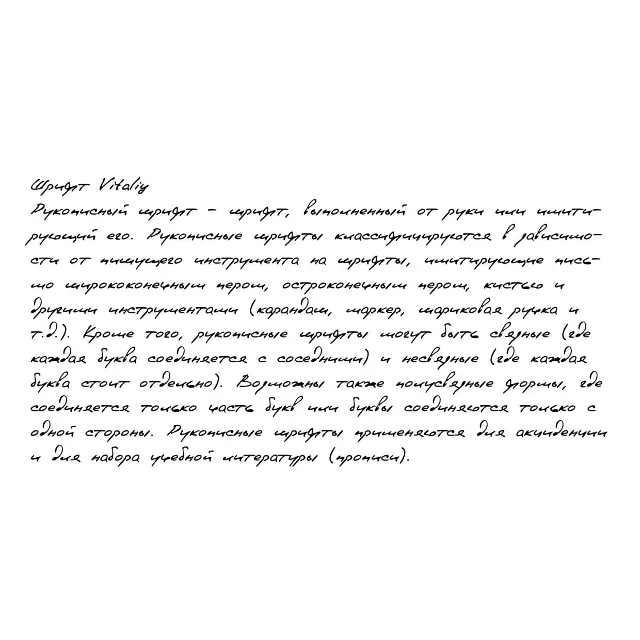 Шрифт Vitaliy
Рукописный шрифт – шрифт, выполненный от руки или имити-
рующий его. Рукописные шрифты классифицируются в зависимо-
сти от пишущего инструмента на шрифты, имитирующие пись-
мо ширококонечным пером, остроконечным пером, кистью и
другими инструментами (карандаш, маркер, шариковая ручка и
т.д.). Кроме того, рукописные шрифты могут быть связные (где
каждая буква соединяется с соседними) и несвязные (где каждая
буква стоит отдельно). Возможны также полусвязные формы, где
соединяется только часть букв или буквы соединяются только с
одной стороны. Рукописные шрифты применяются для акциденции
и для набора учебной литературы (прописи).